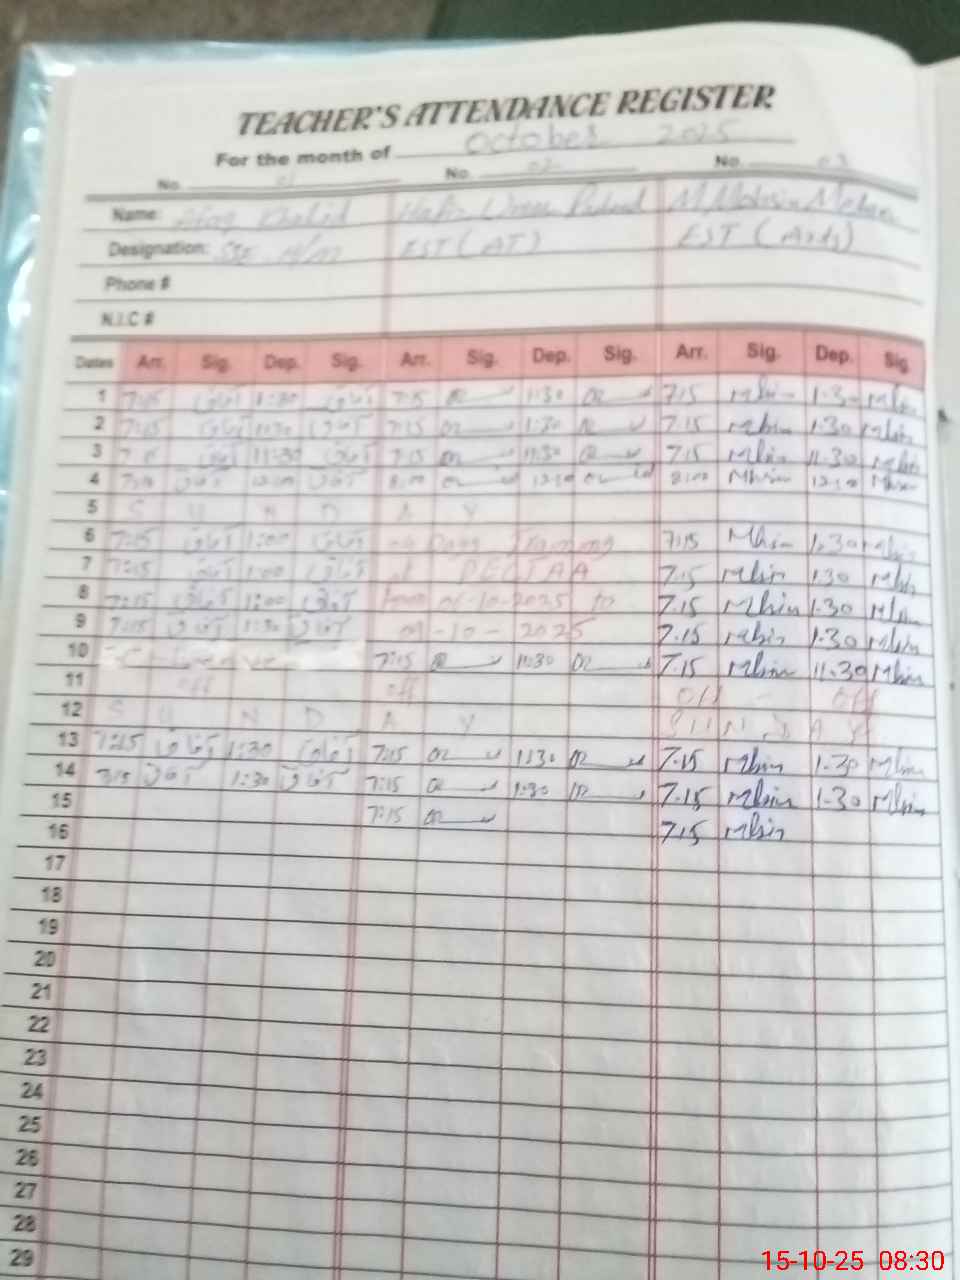 TEACHER'S ATTENDANCE REGISTER
For the month of October 2025
No. 01 No. 02 No. 03
Name: Afaq Khalid Hafiz M. Mohsin
Designation: SSE H/M EST (AT) EST (Arts)
Phone #
N.I.C #
Dates Arr. Sig. Dep. Sig. Arr. Sig. Dep. Sig. Arr. Sig. Dep. Sig.
1 7:15 آفاق 1:30 آفاق 7:15 1:30 7:15 Mhsin 1.30 Mhsin
2 7:15 آفاق 1:30 آفاق 7:15 1:30 7.15 Mhsin 1.30 Mhsin
3 آفاق 11:30 آفاق 7:15 11:30 7.15 Mhsin 11.30 Mhsin
4 آفاق آفاق 8:00 8:00 Mhsin Mhsin
5 S U N D A Y
6 7:15 آفاق 1:00 آفاق Training 7:15 Mhsin 1.30 Mhsin
7 7:15 آفاق 1:00 آفاق at PECTAA 7.15 Mhsin 1.30 Mhsin
8 7:15 آفاق 1:00 آفاق from -10-2025 to 7.15 Mhsin 1.30 Mhsin
9 7:15 آفاق 1:30 آفاق 09-10-2025 7.15 Mhsin 1.30 Mhsin
10 7:15 11:30 7.15 Mhsin 11.30 Mhsin
11 off off Off - Off
12 S U N D A Y S U N D A Y
13 7:15 آفاق 1:30 آفاق 7:15 1:30 7.15 Mhsin 1.30 Mhsin
14 7:15 آفاق 1:30 آفاق 7:15 1:30 7.15 Mhsin 1.30 Mhsin
15 7:15 7.15 Mhsin
16
17
18
19
20
21
22
23
24
25
26
27
28
29
15-10-25 08:30